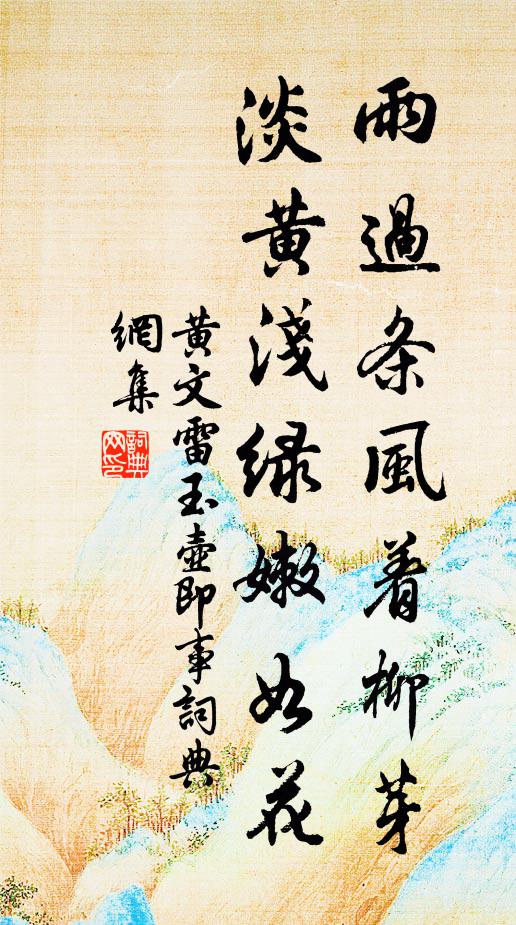 雨過条風着柳芽
淡黄淺緑嫩如花
黄文雷玉壺即事詞典
網集
詞典
网印